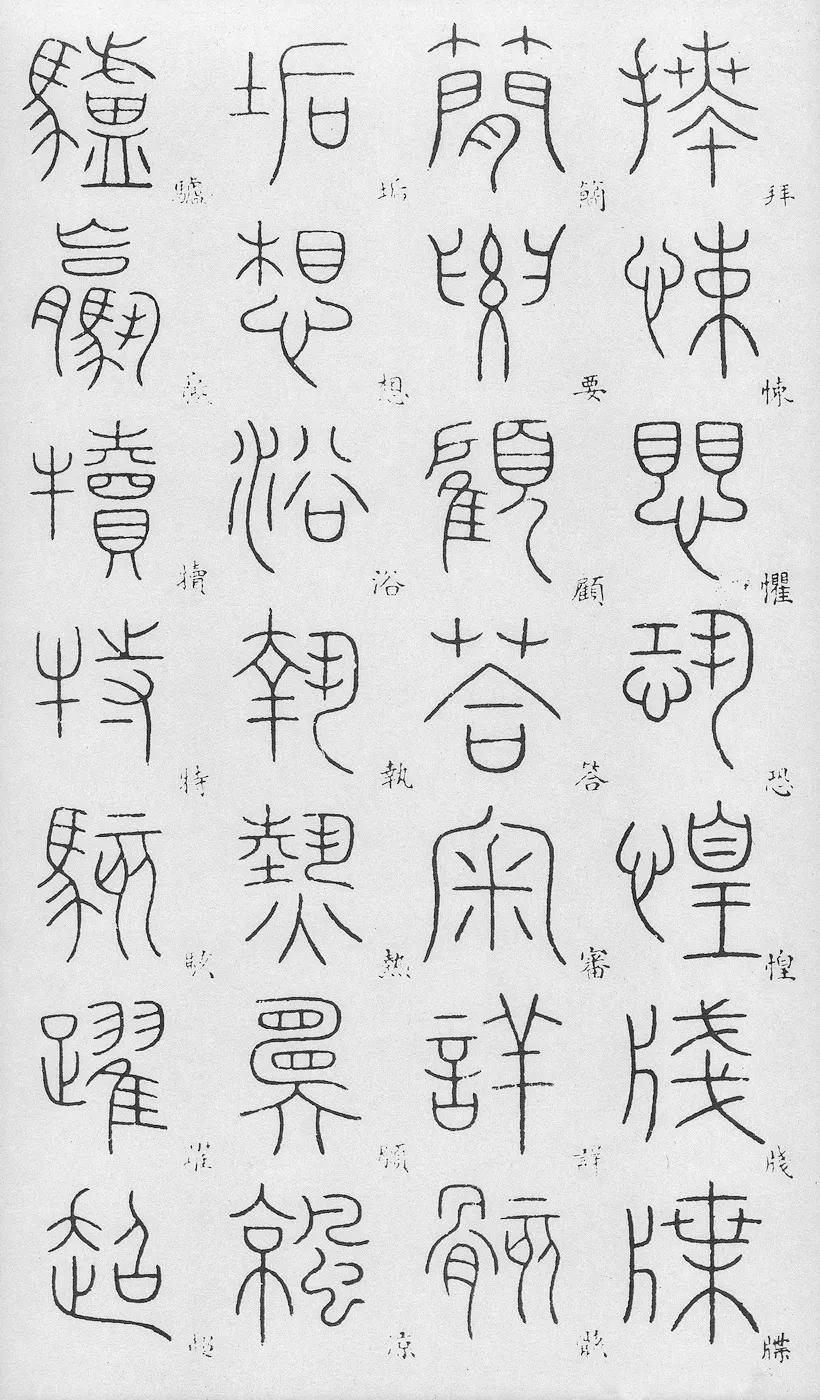 拜悚懼恐惶牋牒
簡要顧答審詳骸
垢想浴執熱願涼
驢驘犢特駭躍超